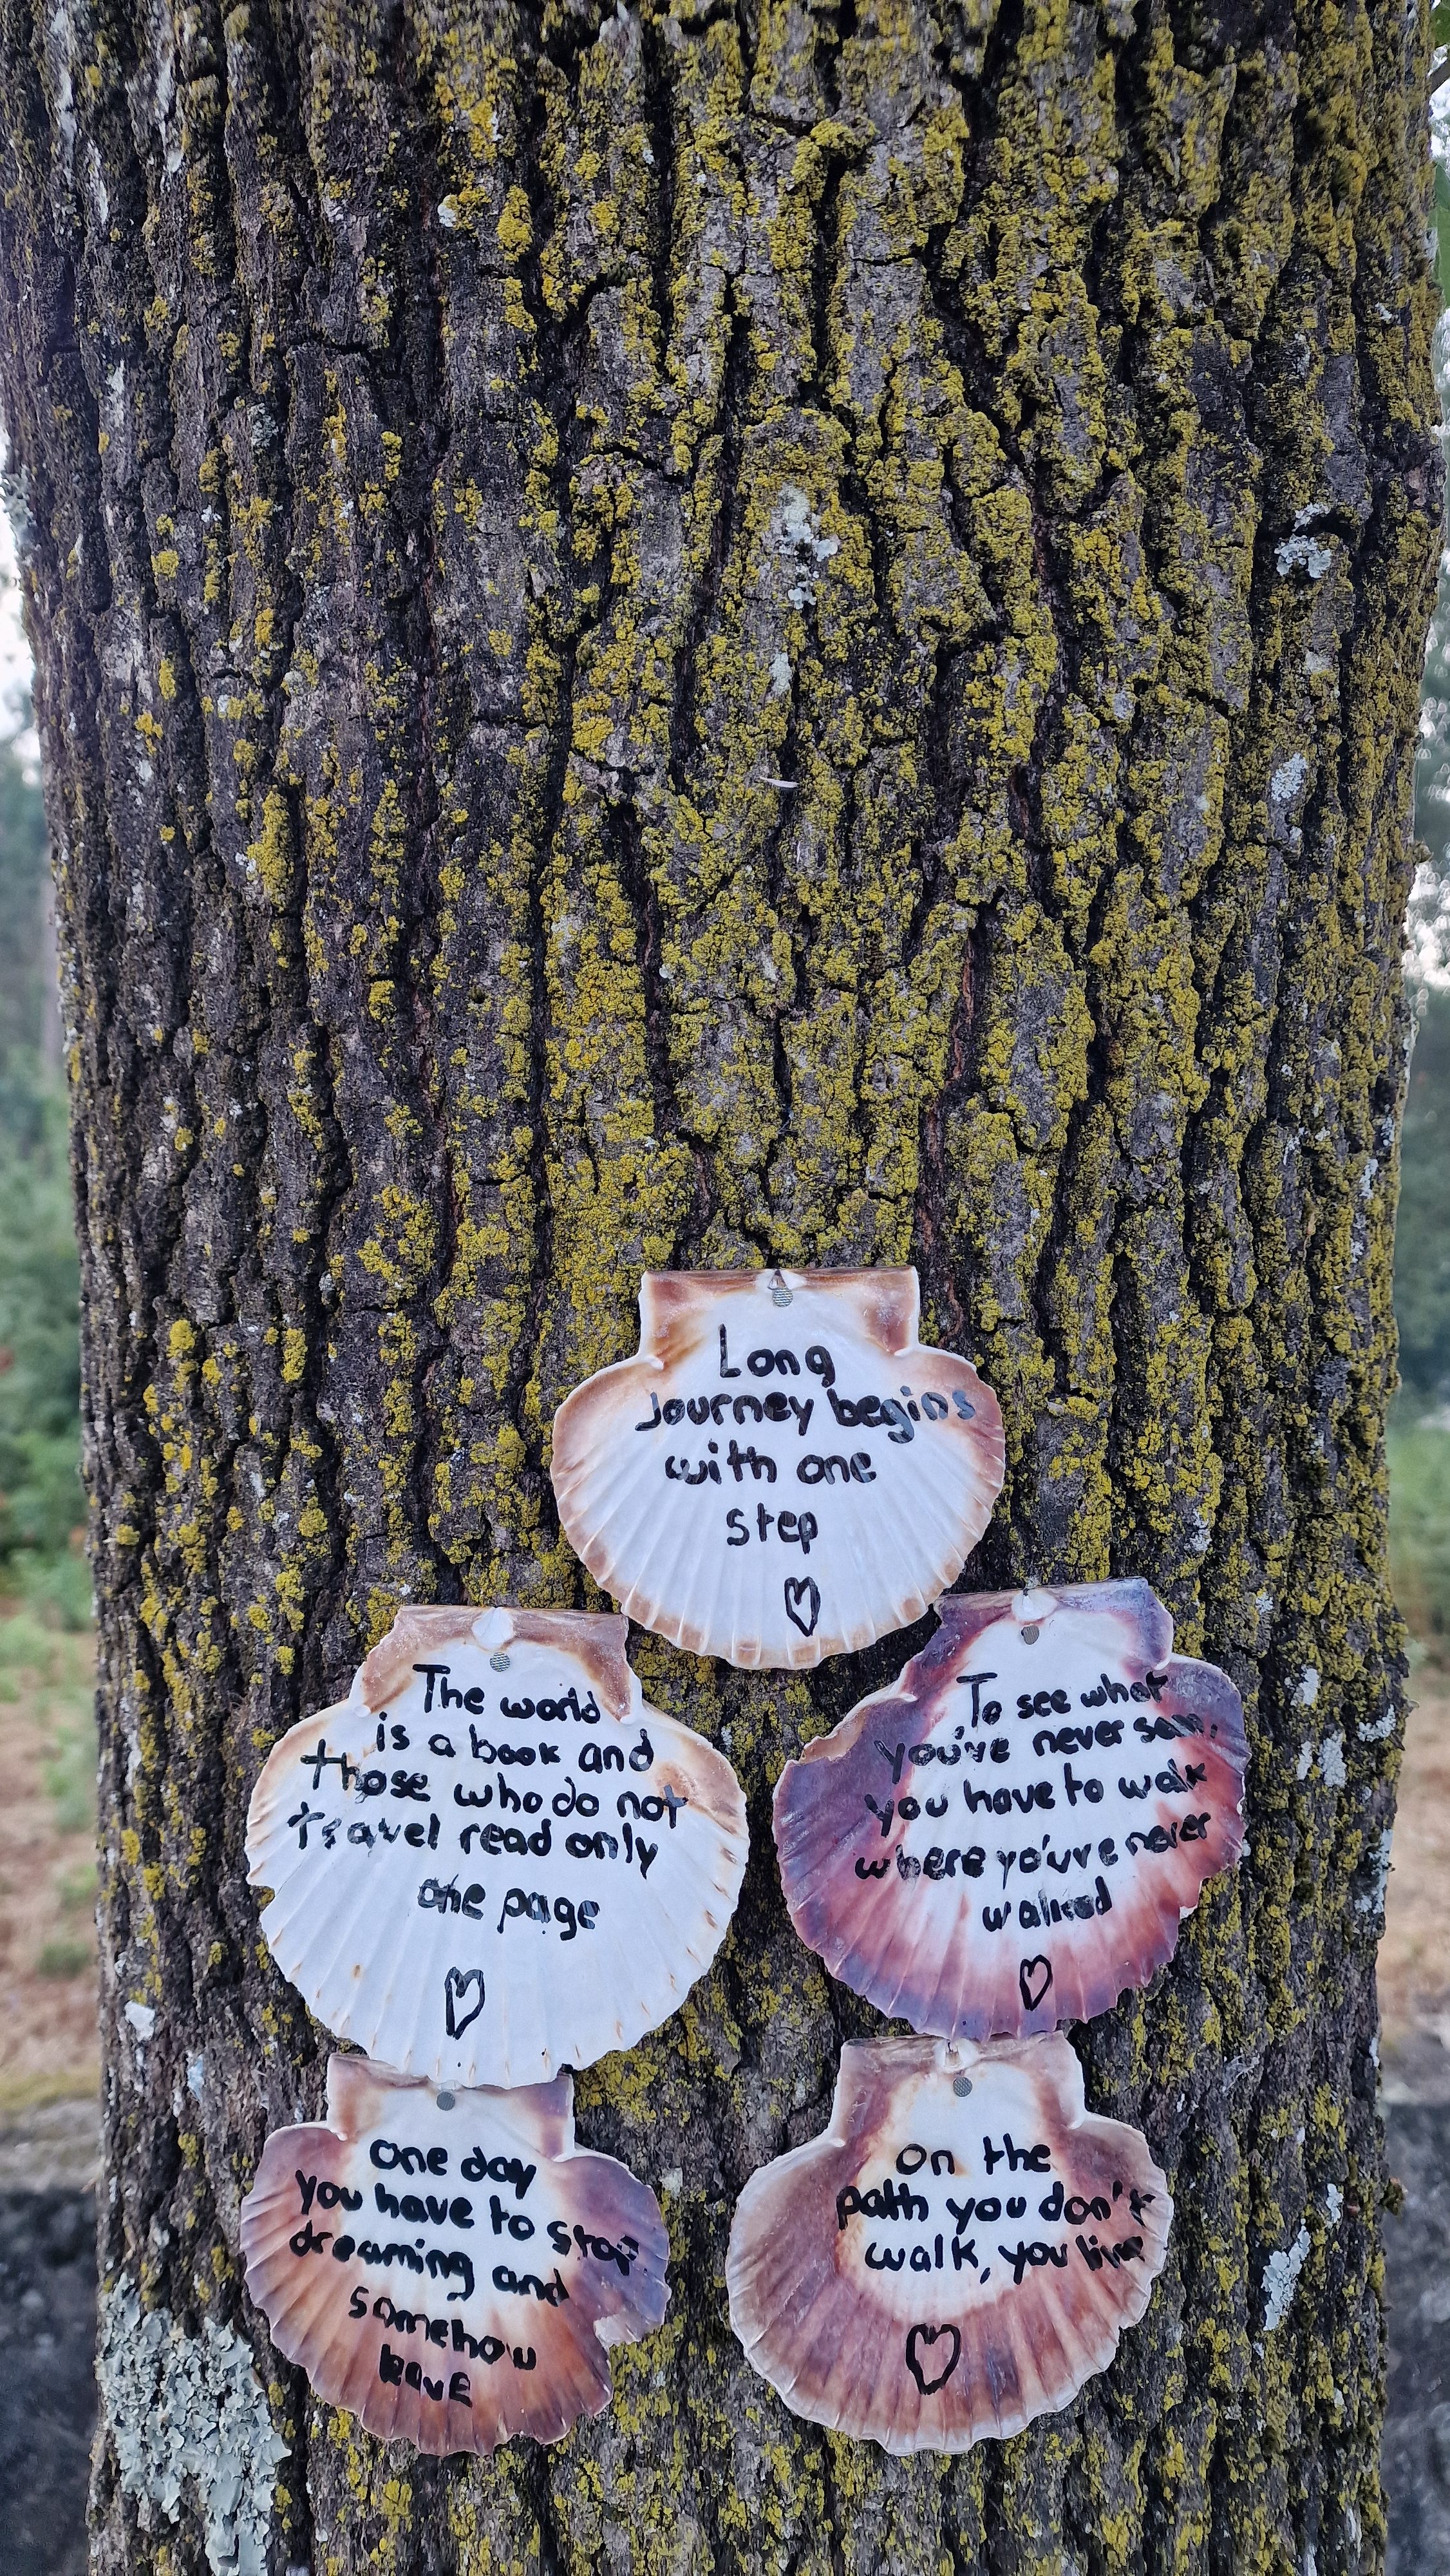 Long
Journey begins
with one
step
The world
is a book and
those who do not
travel read only
one page
To see what
you've never seen,
you have to walk
where yo'uve never
walked
One day
you have to stop
dreaming and
somehow
leave
On the
path you don't
walk, you live